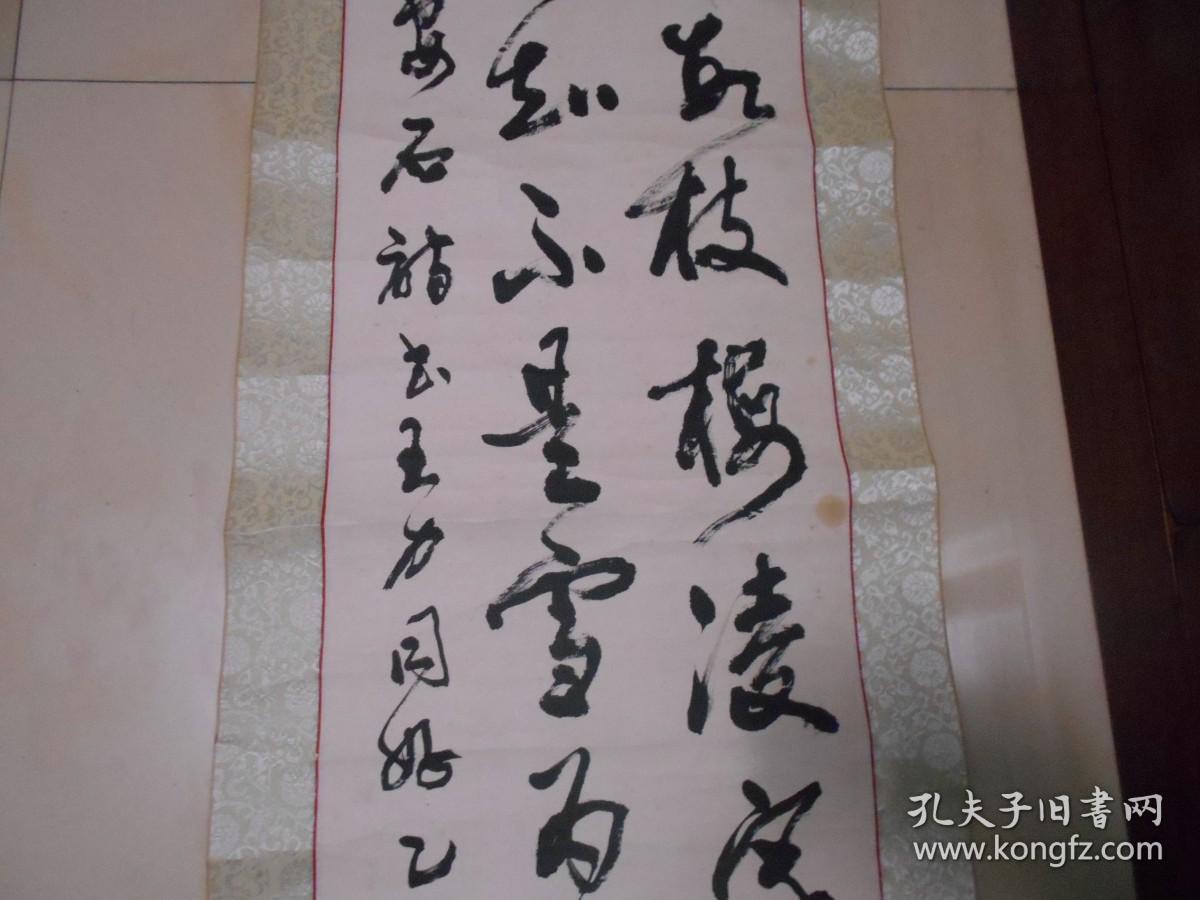 数枝梅凌寒
知不是雪为
安石诗书王力同好乙
孔夫子旧書网
www.kongfz.com